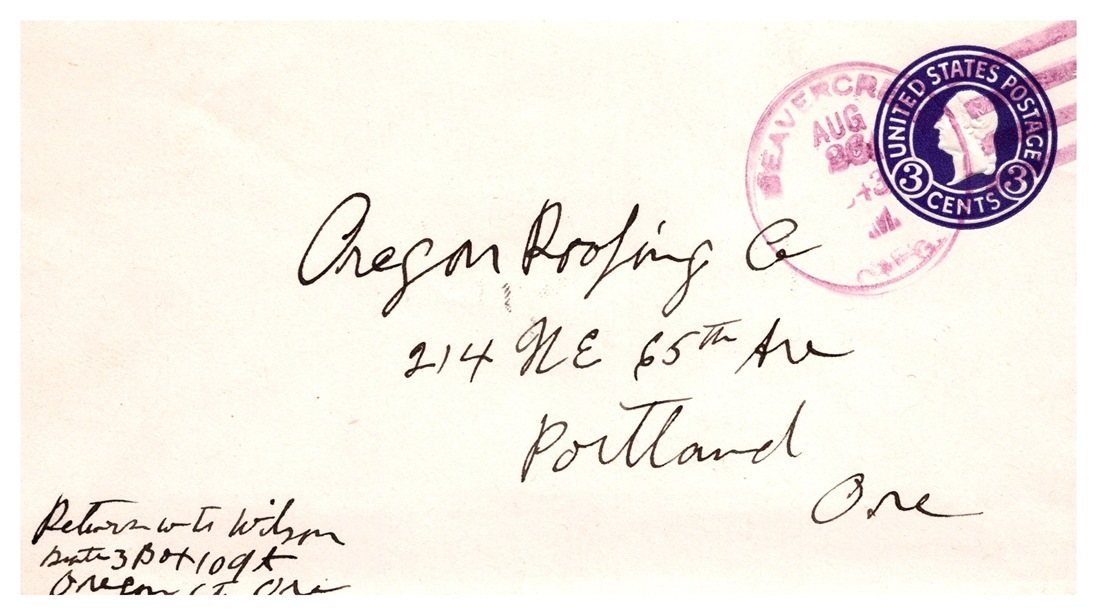 UNITED STATES POSTAGE
3 CENTS 3
BEAVERCR
AUG
26
43
M
OREG.
Oregon Roofing Co
214 NE 65th Ave
Portland
Ore
Return to Wilson
Route 3 Box 109
Oregon Ct. Ore